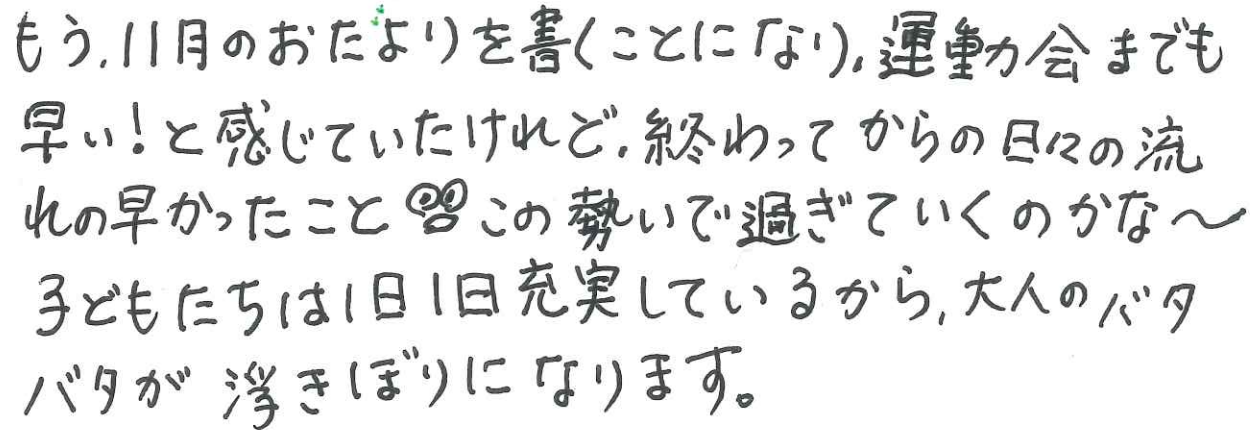 もう、11月のおたよりを書くことになり、運動会までも
早い!と感じていたけれど、終わってからの日々の流
れの早かったこと この勢いで過ぎていくのかな～
子どもたちは1日1日充実しているから、大人のバタ
バタが浮きぼりになります。